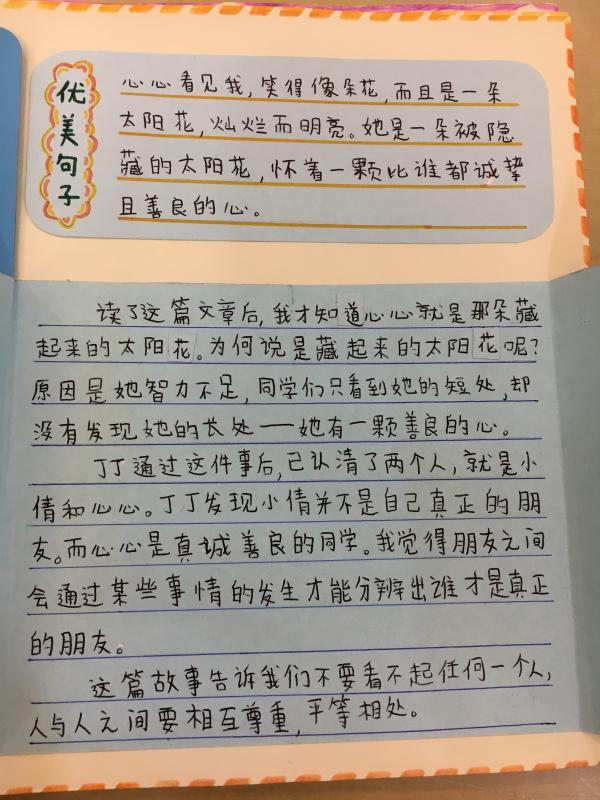 优美句子
心心看见我，笑得像朵花，而且是一朵
太阳花，灿烂而明亮。她是一朵被隐
藏的太阳花，怀着一颗比谁都诚挚
且善良的心。
读了这篇文章后，我才知道心心就是那朵藏
起来的太阳花。为何说是藏起来的太阳花呢？
原因是她智力不足，同学们只看到她的短处，却
没有发现她的长处——她有一颗善良的心。
丁丁通过这件事后，已认清了两个人，就是小
倩和心心。丁丁发现小倩并不是自己真正的朋
友。而心心是真诚善良的同学。我觉得朋友之间
会通过某些事情的发生才能分辨出谁才是真正
的朋友。
这篇故事告诉我们不要看不起任何一个人，
人与人之间要相互尊重，平等相处。